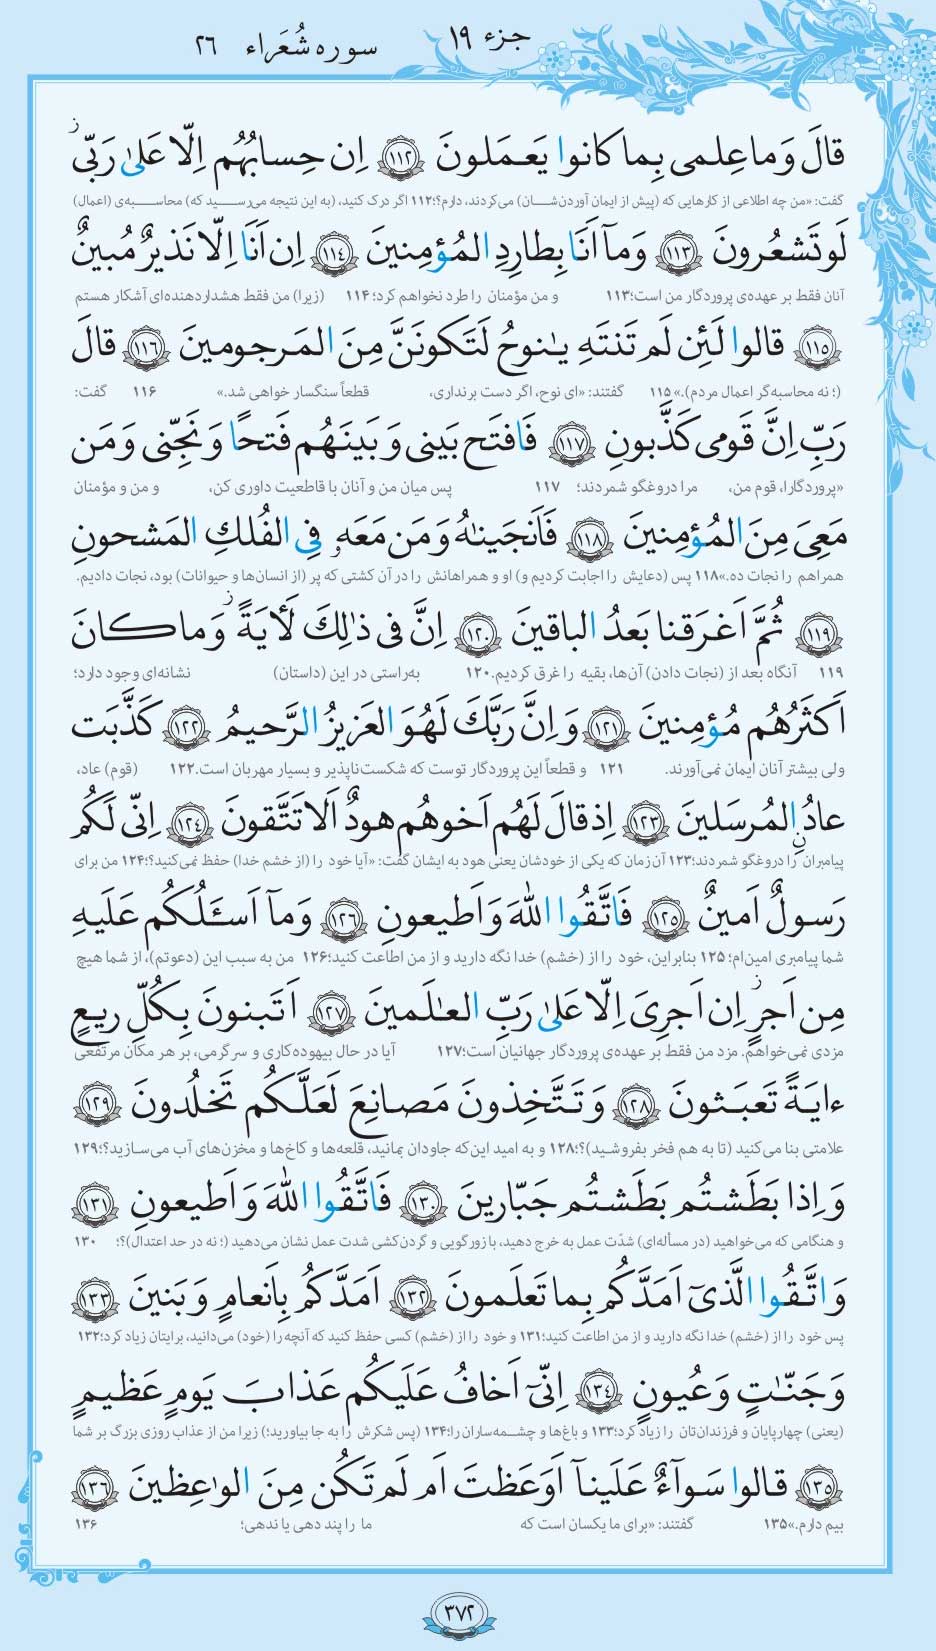 جزء ۱۹
سوره شُعَراء ۲۶
قالَ وَما عِلمی بِما کانوا یَعمَلونَ ﴿۱۱۲﴾ اِن حِسابُهُم اِلّا عَلیٰ رَبّی ز
گفت: «من چه اطلاعی از کارهایی که (پیش از ایمان آوردن‌شان) می‌کردند، دارم؟؛۱۱۲ اگر درک کنید، (به این نتیجه می‌رسید که) محاسبه‌ی (اعمال)
لَو تَشعُرونَ ﴿۱۱۳﴾ وَمآ اَنَا بِطارِدِ المُؤمِنینَ ﴿۱۱٤﴾ اِن اَنَا اِلّا نَذیرٌ مُبینٌ
آنان فقط بر عهده‌ی پروردگار من است؛۱۱۳ و من مؤمنان را طرد نخواهم کرد؛ ۱۱۴ (زیرا) من فقط هشداردهنده‌ای آشکار هستم
﴿۱۱۵﴾ قالوا لَئِن لَم تَنتَهِ یٰنوحُ لَتَکونَنَّ مِنَ المَرجومینَ ﴿۱۱۶﴾ قالَ
(؛ نه محاسبه‌گر اعمال مردم).»۱۱۵ گفتند: «ای نوح، اگر دست برنداری، قطعاً سنگسار خواهی شد.» ۱۱۶ گفت:
رَبِّ اِنَّ قَومی کَذَّبونِ ﴿۱۱۷﴾ فَافتَح بَینی وَ بَینَهُم فَتحًا وَ نَجِّنی وَ مَن
«پروردگارا، قوم من، مرا دروغگو شمردند؛ ۱۱۷ پس میان من و آنان با قاطعیت داوری کن، و من و مؤمنان
مَعِیَ مِنَ المُؤمِنینَ ﴿۱۱۸﴾ فَاَنجَینٰهُ وَ مَن مَعَهو فِی الفُلکِ المَشحونِ
همراهم را نجات ده.»۱۱۸ پس (دعایش را اجابت کردیم و) او و همراهانش را در آن کشتی که پر (از انسان‌ها و حیوانات) بود، نجات دادیم.
﴿۱۱۹﴾ ثُمَّ اَغرَقنا بَعدُ الباقینَ ﴿۱۲۰﴾ اِنَّ فی ذٰلِکَ لَأٓیَةً ز وَ ما کانَ
۱۱۹ آنگاه بعد از (نجات دادن) آن‌ها، بقیه را غرق کردیم.۱۲۰ به‌راستی در این (داستان) نشانه‌ای وجود دارد؛
اَکثَرُهُم مُؤمِنینَ ﴿۱۲۱﴾ وَ اِنَّ رَبَّکَ لَهُوَ العَزیزُ الرَّحیمُ ﴿۱۲۲﴾ کَذَّبَت
ولی بیشتر آنان ایمان نمی‌آورند. ۱۲۱ و قطعاً این پروردگار توست که شکست‌ناپذیر و بسیار مهربان است.۱۲۲ (قوم) عاد،
عادُنِ المُرسَلینَ ﴿۱۲۳﴾ اِذ قالَ لَهُم اَخوهُم هودٌ اَلا تَتَّقونَ ﴿۱۲٤﴾ اِنّی لَکُم
پیامبران را دروغگو شمردند؛۱۲۳ آن زمان که یکی از خودشان یعنی هود به ایشان گفت: «آیا خود را (از خشم خدا) حفظ نمی‌کنید؟؛۱۲۴ من برای
رَسولٌ اَمینٌ ﴿۱۲۵﴾ فَاتَّقُوا اللّٰهَ وَ اَطیعونِ ﴿۱۲۶﴾ وَ مآ اَسـَٔلُکُم عَلَیهِ
شما پیامبری امین‌ام؛ ۱۲۵ بنابراین، خود را از (خشم) خدا نگه دارید و از من اطاعت کنید؛۱۲۶ من به سبب این (دعوتم)، از شما هیچ
مِن اَجرٍ ز اِن اَجرِیَ اِلّا عَلیٰ رَبِّ العٰلَمینَ ﴿۱۲۷﴾ اَتَبنونَ بِکُلِّ ریعٍ
مزدی نمی‌خواهم. مزد من فقط بر عهده‌ی پروردگار جهانیان است؛۱۲۷ آیا در حال بیهوده‌کاری و سرگرمی، بر هر مکان مرتفعی
ءایَةً تَعبَثونَ ﴿۱۲۸﴾ وَ تَتَّخِذونَ مَصانِعَ لَعَلَّکُم تَخلُدونَ ﴿۱۲۹﴾
علامتی بنا می‌کنید (تا به هم فخر بفروشید)؟؛۱۲۸ و به امید این‌که جاودان بمانید، قلعه‌ها و کاخ‌ها و مخزن‌های آب می‌سازید؟؛۱۲۹
وَ اِذا بَطَشتُم بَطَشتُم جَبّارینَ ﴿۱۳۰﴾ فَاتَّقُوا اللّٰهَ وَ اَطیعونِ ﴿۱۳۱﴾
و هنگامی که می‌خواهید (در مسأله‌ای) شدّت عمل به خرج دهید، با زورگویی و گردن‌کشی شدت عمل نشان می‌دهید (؛ نه در حد اعتدال)؟؛ ۱۳۰
وَ اتَّقُوا الَّذیٓ اَمَدَّکُم بِما تَعلَمونَ ﴿۱۳۲﴾ اَمَدَّکُم بِاَنعامٍ وَ بَنینَ ﴿۱۳۳﴾
پس خود را از (خشم) خدا نگه دارید و از من اطاعت کنید؛۱۳۱ و خود را از (خشم) کسی حفظ کنید که آنچه را (خود) می‌دانید، برایتان زیاد کرد؛۱۳۲
وَ جَنّٰتٍ وَ عُیونٍ ﴿۱۳٤﴾ اِنّیٓ اَخافُ عَلَیکُم عَذابَ یَومٍ عَظیمٍ
(یعنی) چهارپایان و فرزندان‌تان را زیاد کرد؛۱۳۳ و باغ‌ها و چشمه‌ساران را؛۱۳۴ (پس شکرش را به جا بیاورید؛) زیرا من از عذاب روزی بزرگ بر شما
﴿۱۳۵﴾ قالوا سَوآءٌ عَلَینآ اَوَعَظتَ اَم لَم تَکُن مِنَ الوٰعِظینَ ﴿۱۳۶﴾
بیم دارم.»۱۳۵ گفتند: «برای ما یکسان است که ما را پند دهی یا ندهی؛ ۱۳۶
۳۷۲